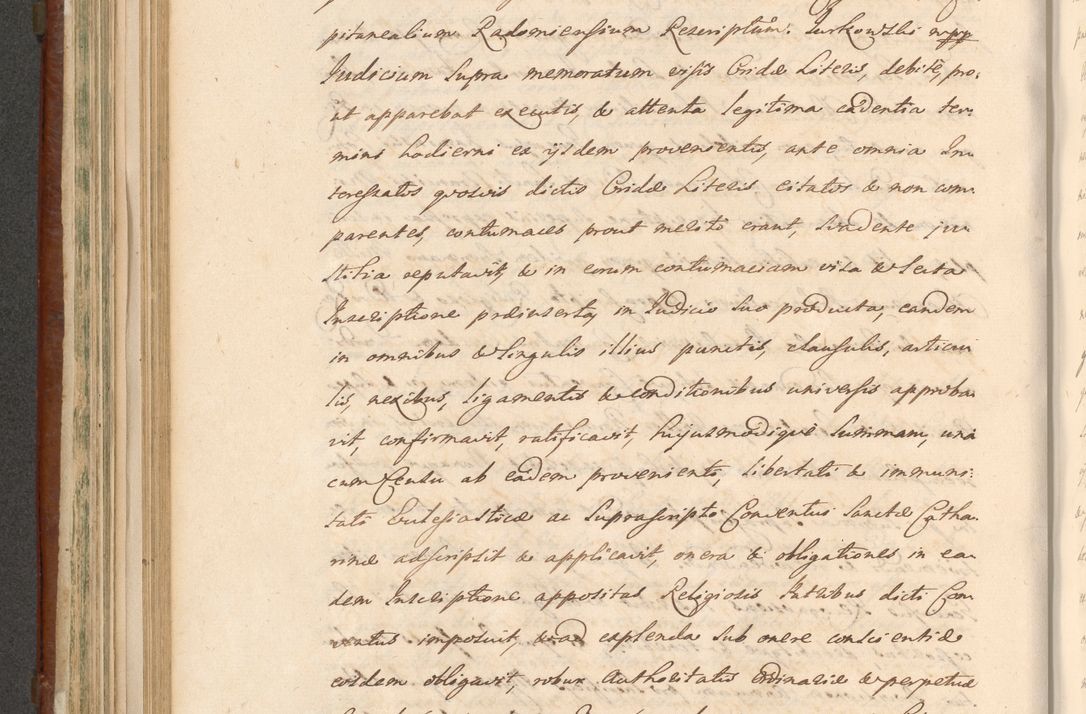 pitanealium Radomiensium Rescriptum. Turkowski mpp
Judicium Supra memoratum visis Cridæ Literis, debite, pro.
ut apparebat executis, & attenta legitima cadentia ter.
mini hodierni ex ijsdem provenientis, ante omnia In.
teressatos quosvis dictis Cridæ Literis citatos & non com.
parentes, contumaces prout merito erant, suadente ju.
stitia reputavit, & in eorum contumaciam visa & lecta
Inscriptione præinserta, in Judicio suo producta, eandem
in omnibus & Singulis illius punctis, clausulis, articu
lis, nexibus, ligamentis & conditionibus universis approba.
vit, confirmavit, ratificavit, hujusmodique Summam, una
cum Censu ab eadem proveniente, libertati & immuni.
tati Ecclesiasticæ ac Suprascripto Conventui Sanctæ Catha.
rinæ adscripsit & applicavit, onera & obligationes in ea.
dem Inscriptione appositas Religiosis Patribus dicti Con.
ventus imposuit, & ad explenda sub onere conscientiæ
eosdem obligavit, robur Authoritatis Ordinariæ & perpetuæ